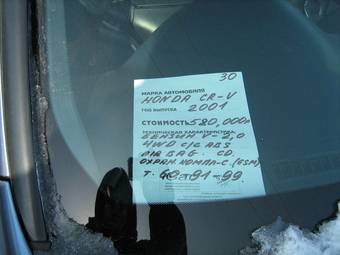 30
МАРКА АВТОМОБИЛЯ
HONDA CR-V
ГОД ВЫПУСКА 2001
СТОИМОСТЬ 580,000
ТЕХНИЧЕСКАЯ ХАРАКТЕРИСТИКА:
БЕНЗИН V-2,0
4WD C/C ABS
AIR BAG. CD.
ОХРАН. КОМПЛ-С. (GSM)
Т. 60-91-99